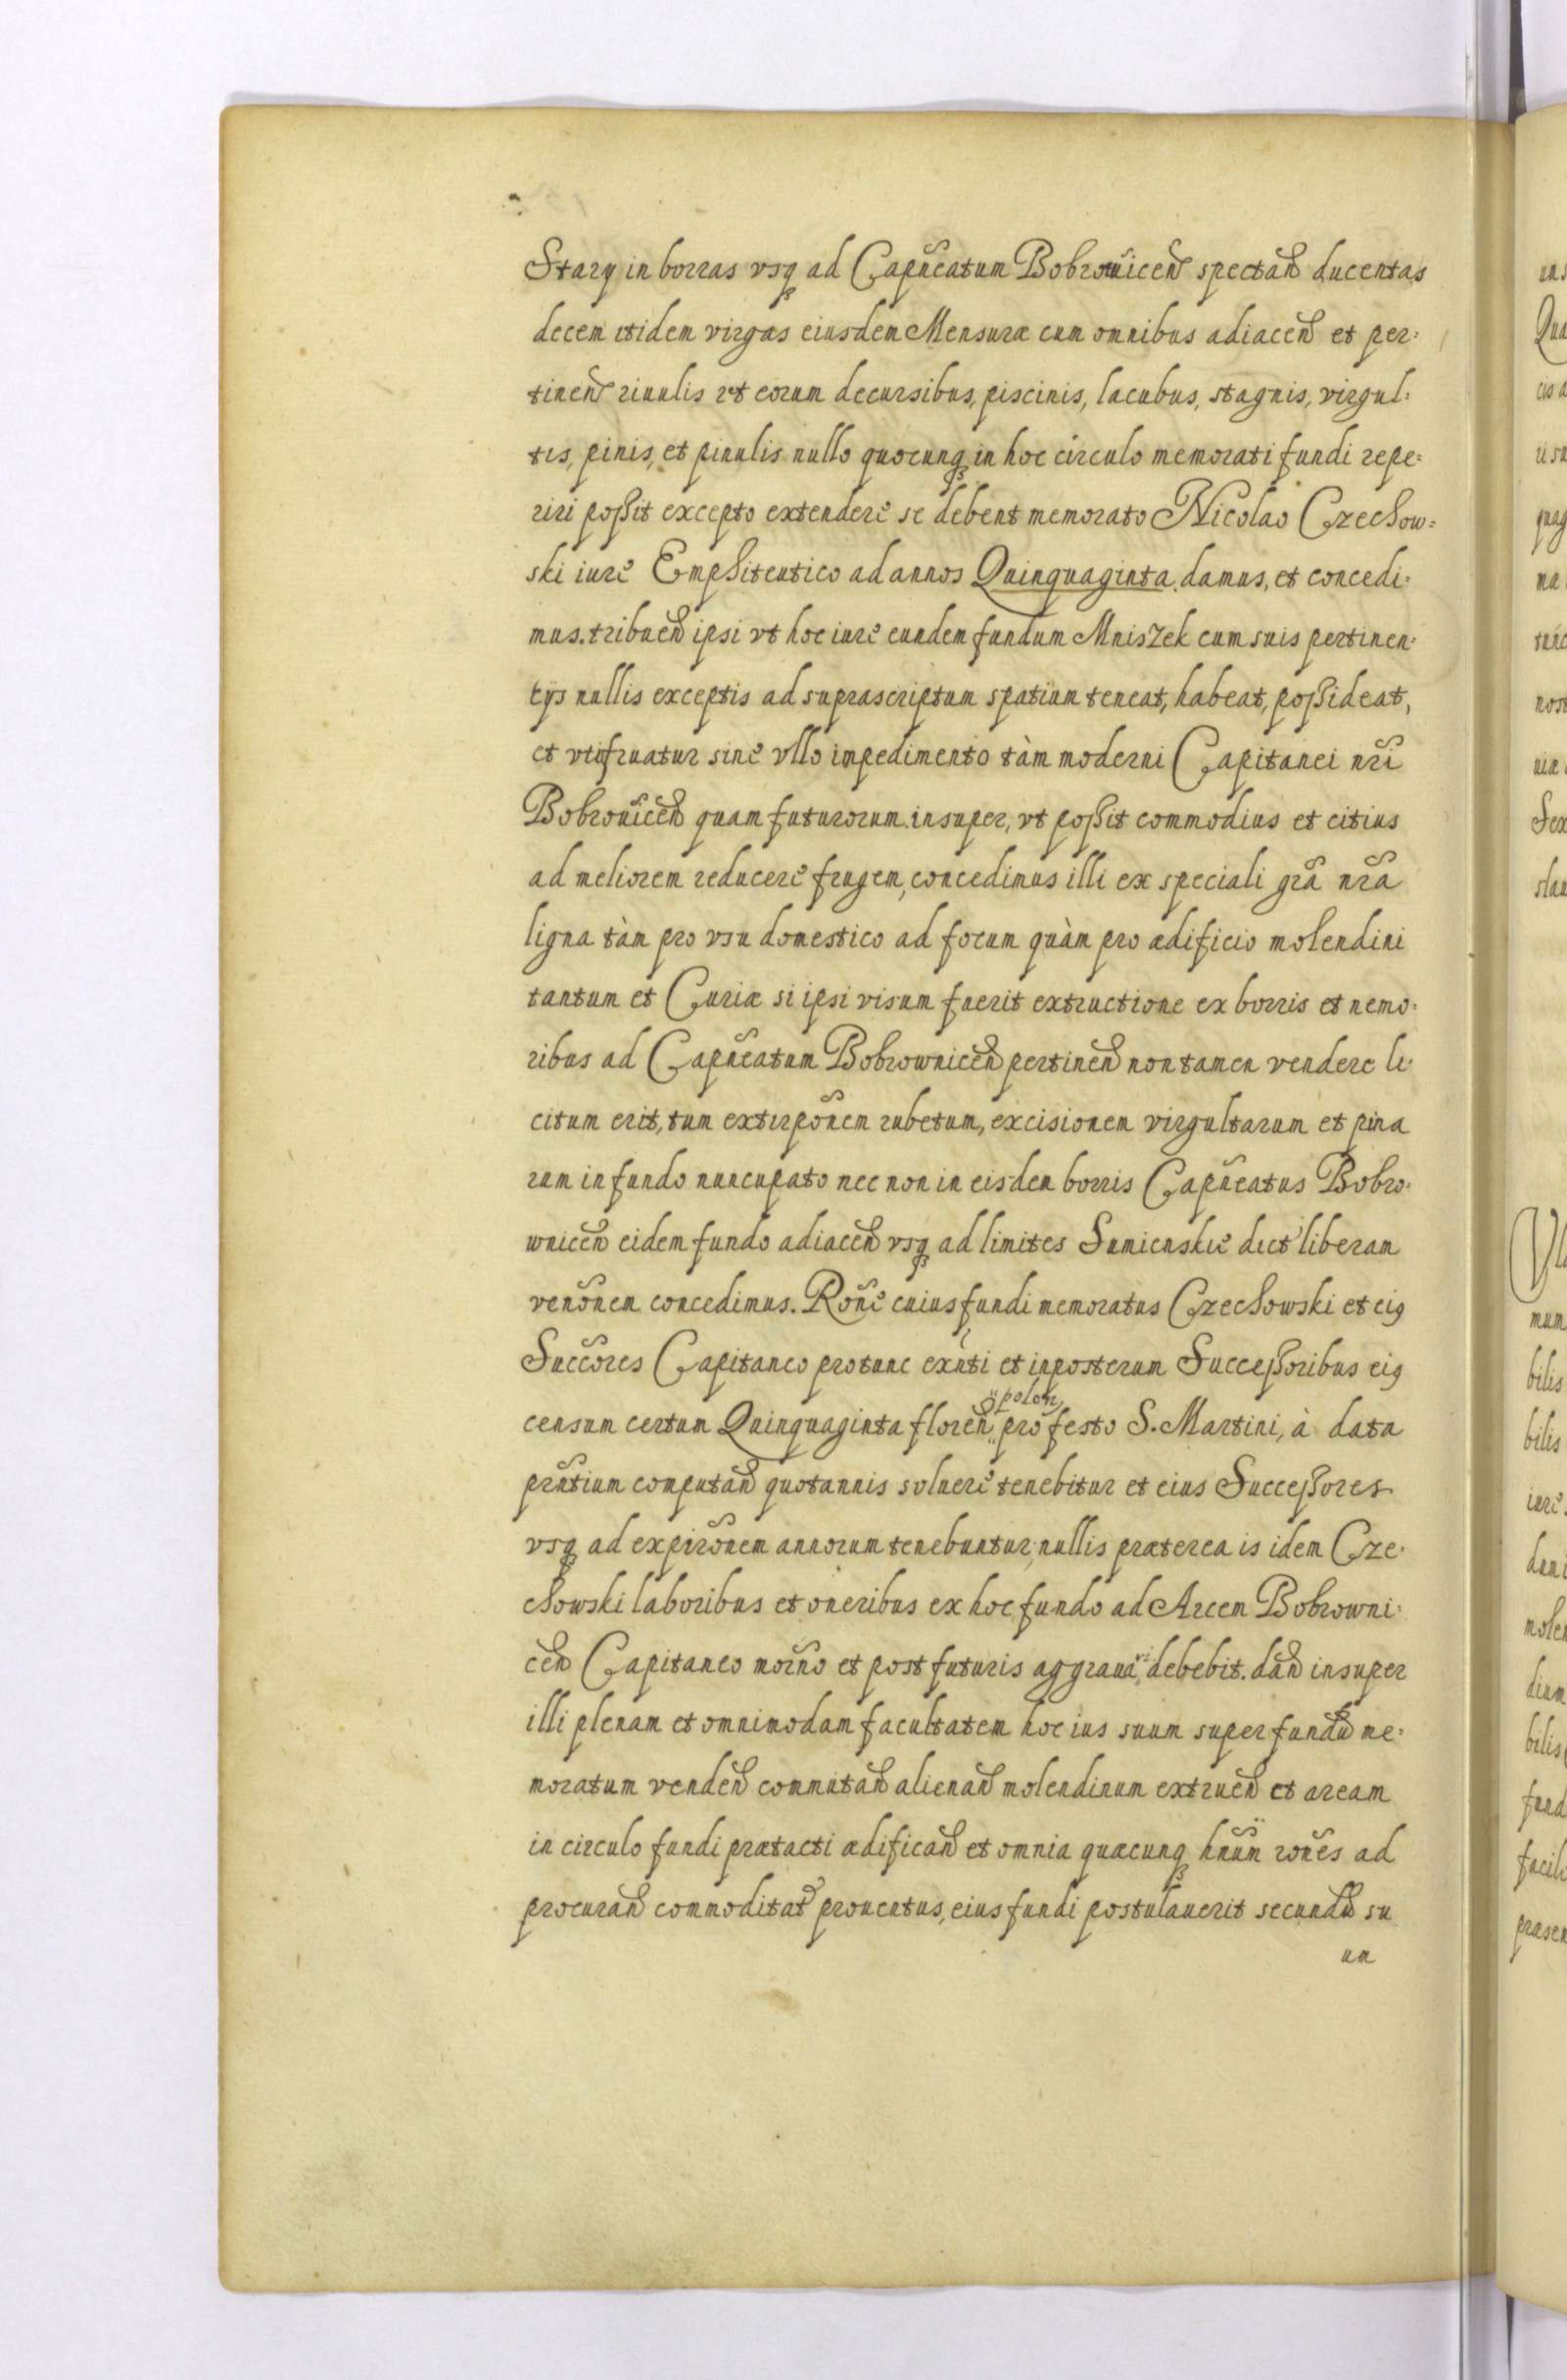 Stary in borras vsq₃ ad Capñeatum Bobrouicen̄ spectan̄ ducentas
decem itidem virgas eiusdem Mensuræ cum omnibus adiacen̄ et per:
tinen̄ riuulis et eorum decursibus, piscinis, lacubus, stagnis, virgul:
tis, pinis, et pinulis nullo quocunq₃ in hoc circulo memorati fundi repe:
riri poßit excepto extendere se debent memorato Nicolao Czechow=
ski iure Emphiteutico ad annos Quinquaginta damus, et concedi:
mus. tribuen̄ ipsi vt hoc iure eundem fundum Mniszek cum suis pertinen:
tijs nullis exceptis ad suprascriptum spatium teneat, habeat, poßideat,
et vtifruatur sine vllo impedimento tàm moderni Capitanei nr̃i
Bobrouicen̄ quam futurorum. insuper, vt poßit commodius et citius
ad meliorem reducere frugem, concedimus illi ex speciali gr̃a nr̃a
ligna tàm pro vsu domestico ad focum quàm pro ædificio molendini
tantum et Curiæ si ipsi visum fuerit extructione ex borris et nemo:
ribus ad Capñeatum Bobrownicen̄ pertinen̄ non tamen vendere li:
citum erit, tum extirpõnem rubetum, excisionem virgultarum et pina
rum in fundo nuncupato nec non in eisdem borris Capñeatus Bobro:
wnicen̄ eidem fundo adiacen̄ vsq₃ ad limites Sumienskie dict' liberam
venõnem concedimus. Rõne cuius fundi memoratus Czechowski et ei9
Succõres Capitaneo protunc exñti et inposterum Succeßoribus ei9
censum certum Quinquaginta floren̄ polon, pro festo S. Martini, à data
prñtium computan̄ quotannis soluere tenebitur et eius Succeßores
vsq₃ ad expirõnem annorum tenebuntur, nullis præterea is idem Cze:
chowski laboribus et oneribus ex hoc fundo ad Arcem Bobrowni:
cen̄ Capitaneo mõrno et post futuris aggrauari debebit. dan̄ insuper
illi plenam et omnimodam facultatem hoc ius suum super fundũ me:
moratum venden̄ commutan̄ alienan̄ molendinum extruen̄ et aream
in circulo fundi prætacti ædifican̄ et omnia quæcunq₃ hñum rõnes ad
procuran̄ commoditat̃ prouentus, eius fundi postulauerit secundũ su
um